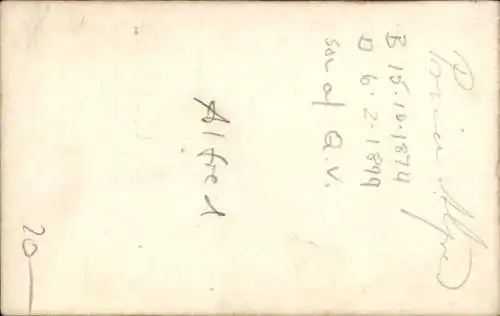 Prince Alfred
B 15.10.1874
D 6.2.1899
son of Q.V.
Alfred
20